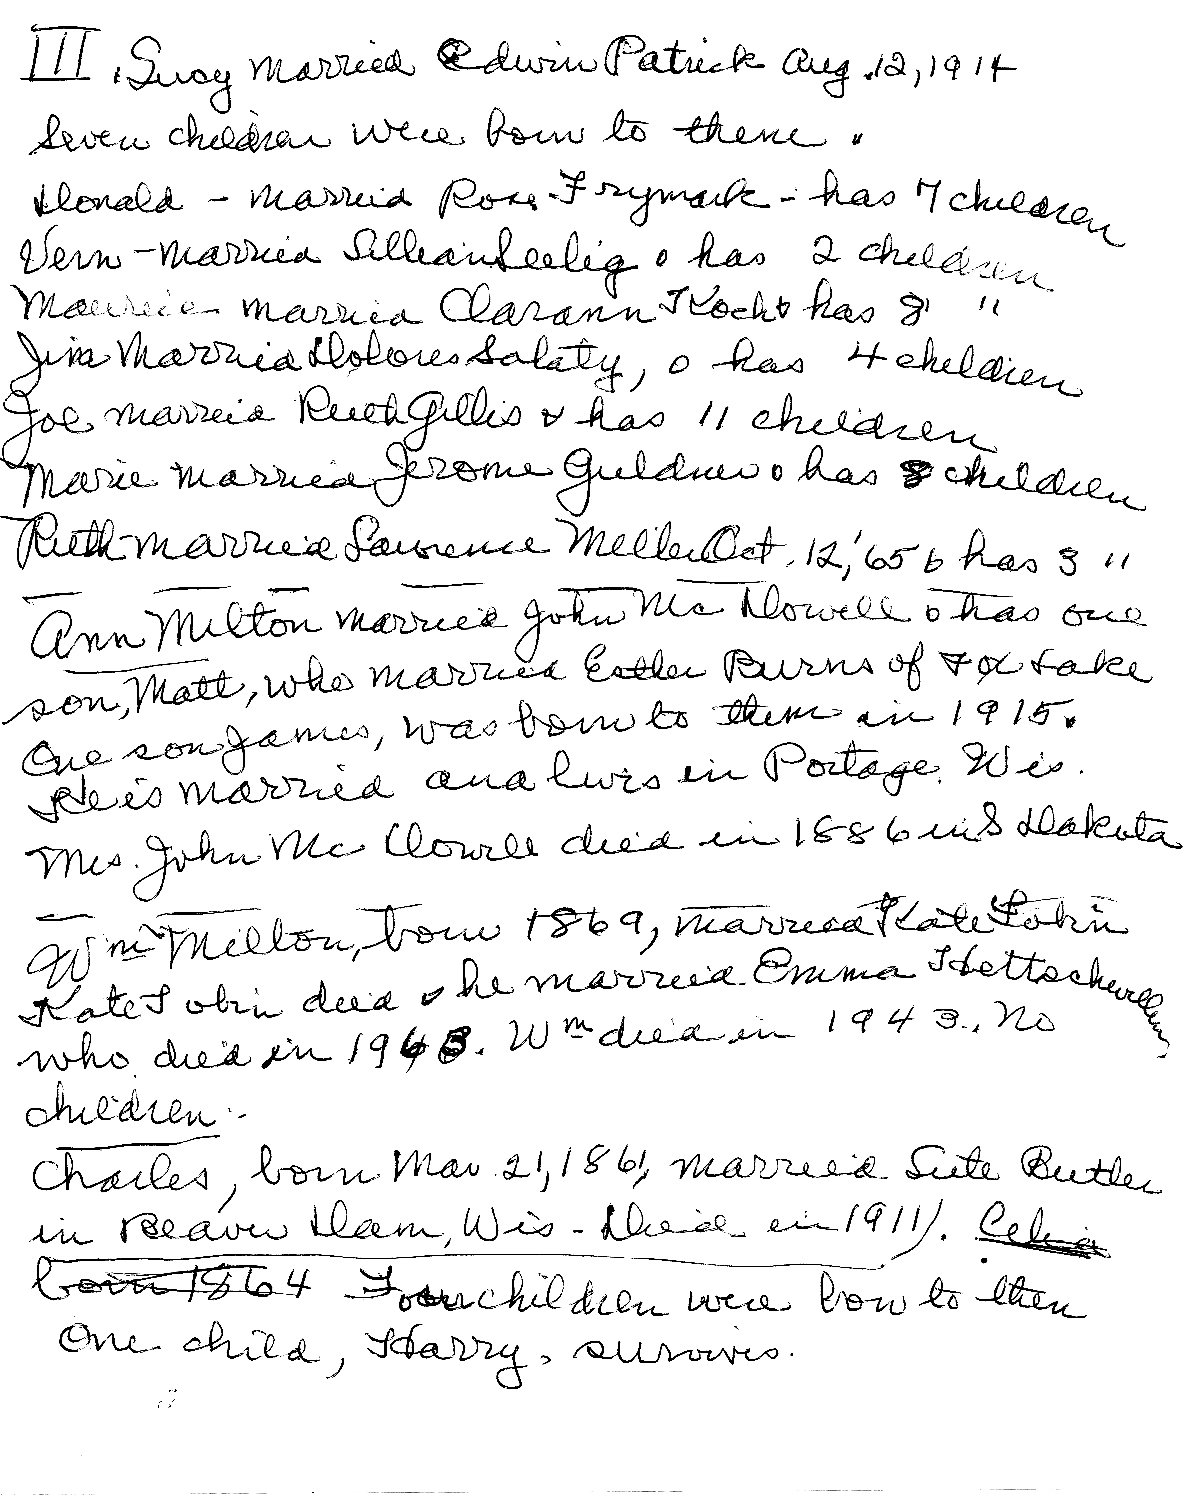 III. Lucy married Edwin Patrick Aug. 12, 1914
Seven children were born to them.
Donald - married Rose Frymark - has 7 children
Vern - married Lillian Seelig & has 2 children
Maurice married Clarann Koch & has 8 "
Jim married Dolores Salaty, & has 4 children
Joe married Ruth Gillis & has 11 children
Marie married Jerome Guldner & has 8 children
Ruth married Lawrence Miller Oct. 12, '65 & has 3 "
Ann Milton married John Mc Dowell & has one
son, Matt, who married Esther Burns of Fox Lake
One son James, was born to them in 1915.
He is married and lives in Portage, Wis.
Mrs. John Mc Dowell died in 1886 in S Dakota
Wm Milton, born 1869, married Kate Tobin
Kate Tobin died & he married Emma
who died in 196 . Wm died in 1943. No
children.
Charles, born Mar 21, 1861, married Sute Butler
in Beaver Dam, Wis - Died in 1911). Celia
born 1864 Four children were born to them
One child, Harry, survives.